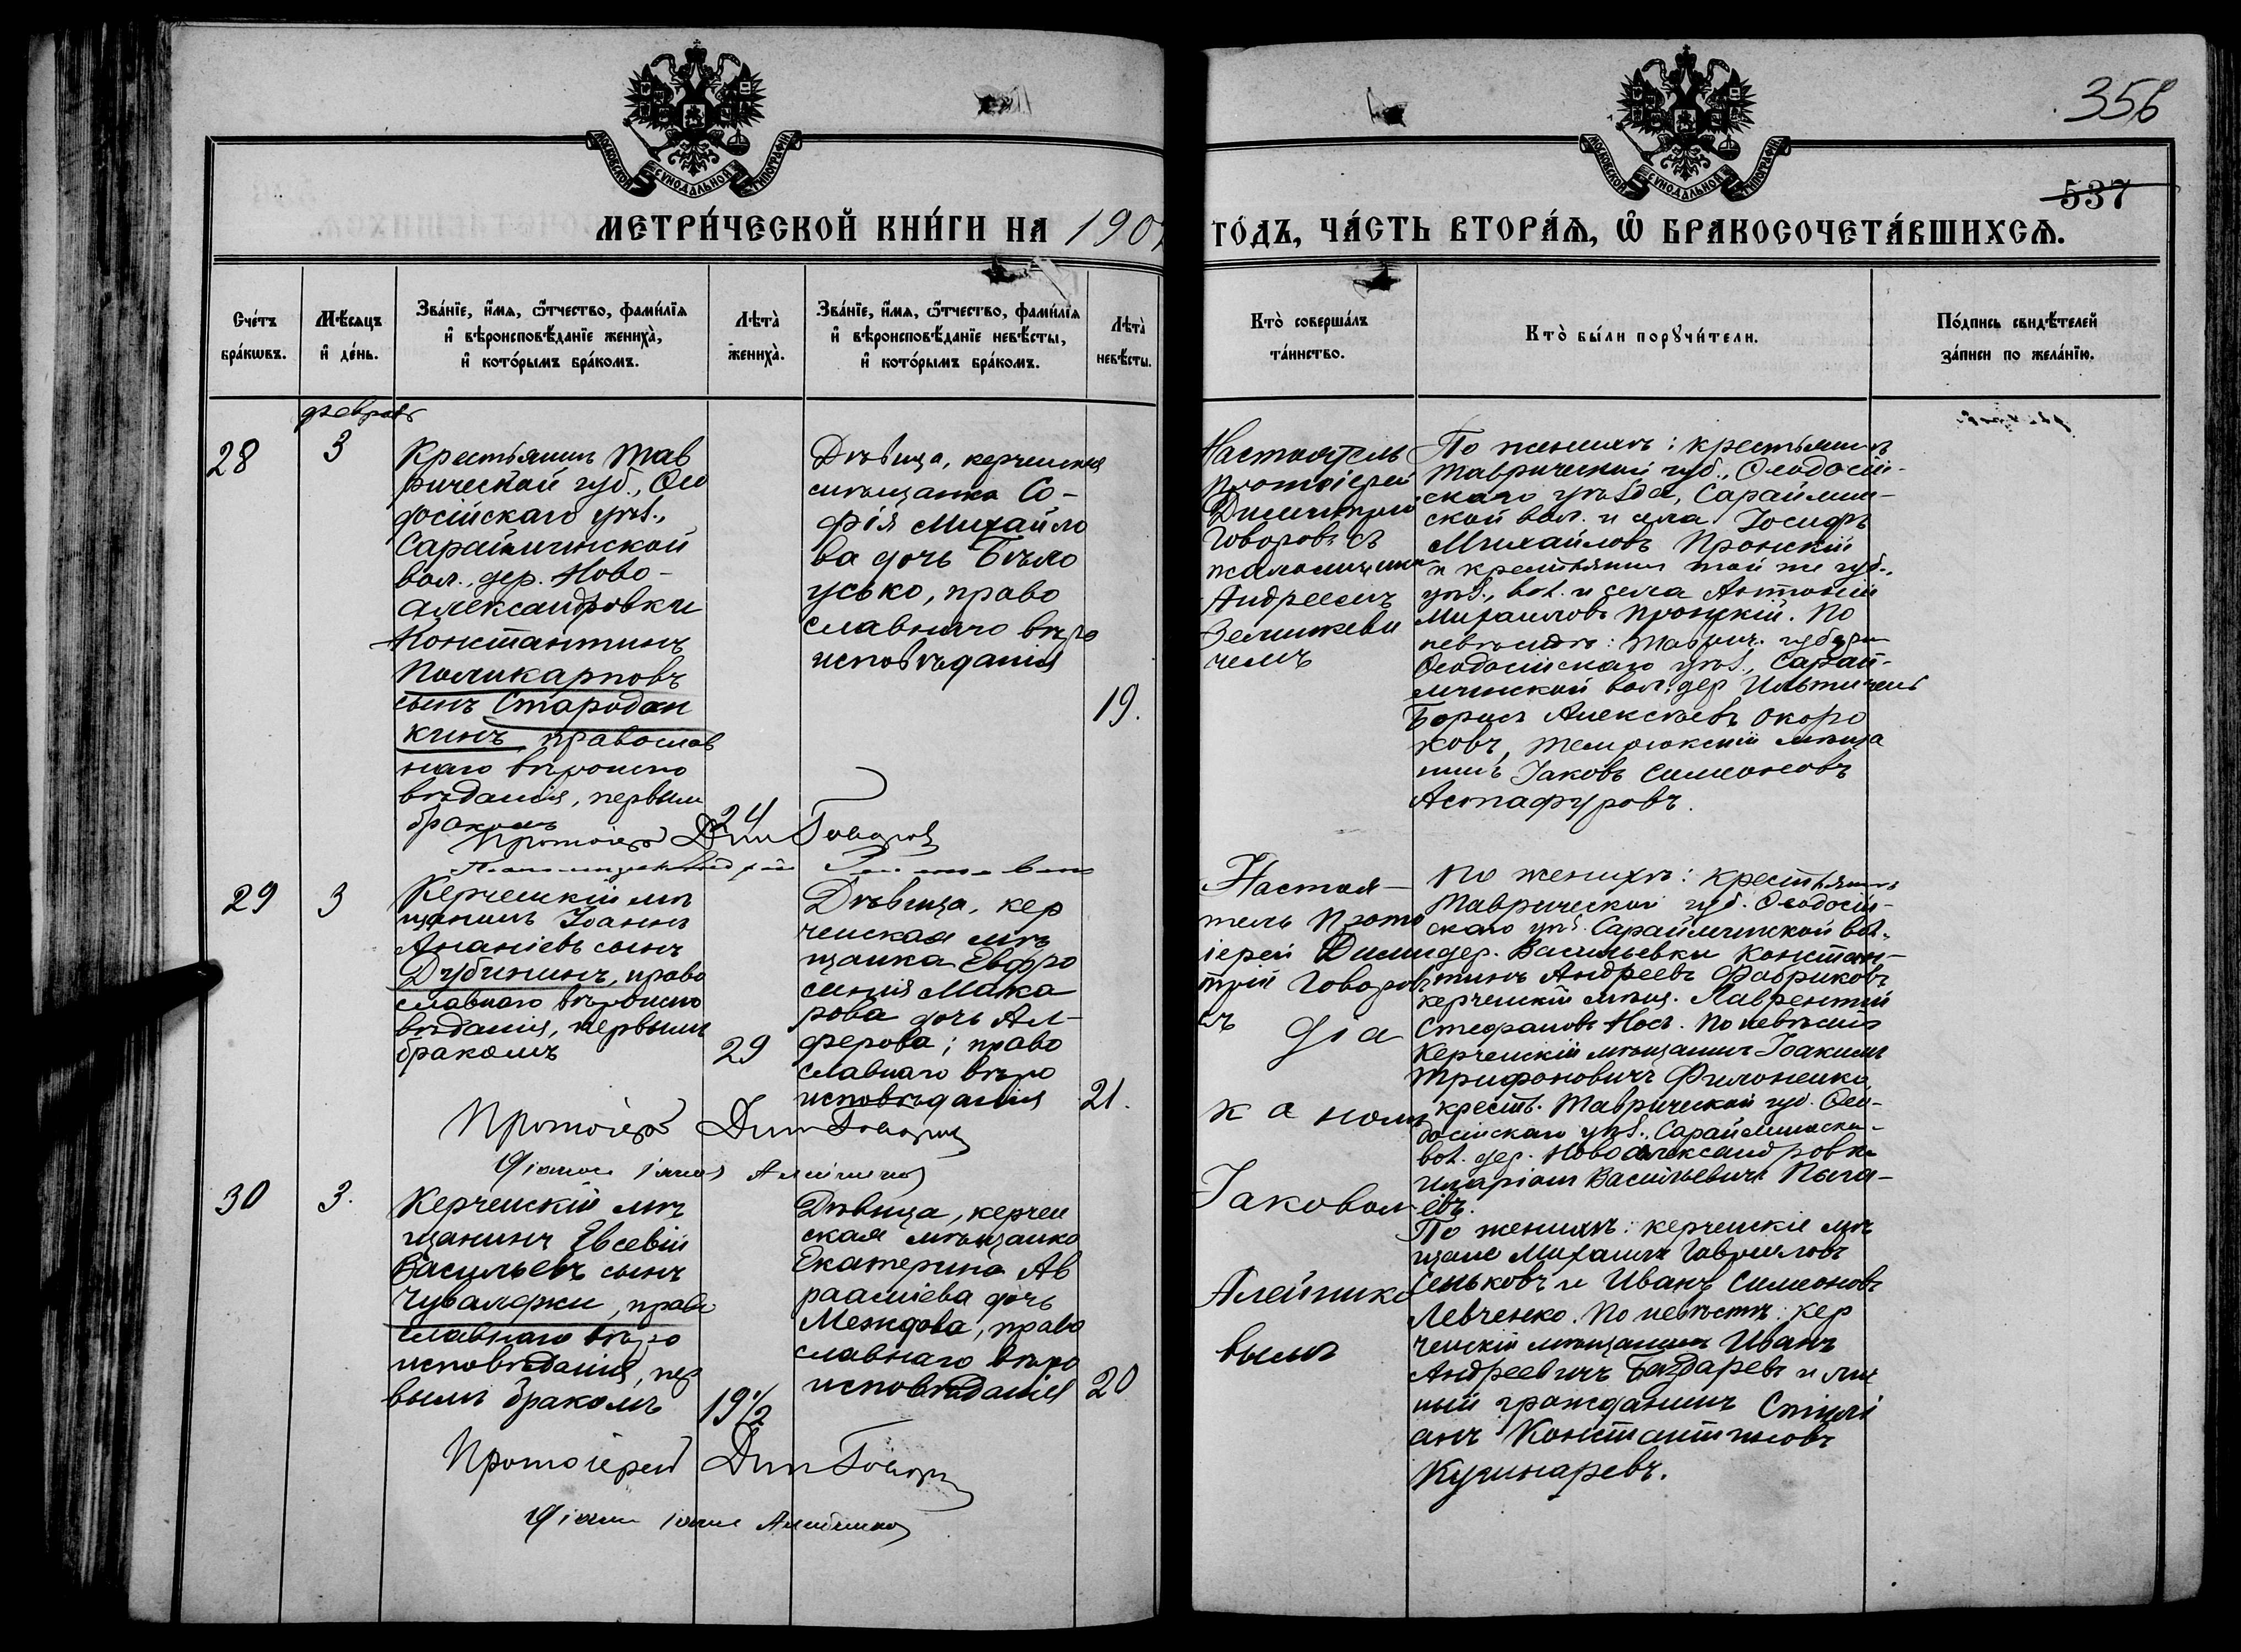 356
537
МОСКОВСКОЙ СѴНОДАЛЬНОЙ ТИПОГРАФІИ
МОСКОВСКОЙ СѴНОДАЛЬНОЙ ТИПОГРАФІИ
МЕТРИ́ЧЕСКОЙ КНИ́ГИ НА 190
ГО́ДЪ, ЧА́СТЬ ВТОРА́Ѧ, Ѽ БРАКОСОЧЕТА́ВШИХСѦ.
Сче́тъ
бра́кѡвъ.
Мѣ́сяцъ
и҆ де́нь.
Зва́нїе, и҆́мя, ѻ҆́тчество, фами́лїя
и҆ вѣроисповѣ́данїе жениха̀,
и҆ кото́рымъ бра́комъ.
Лѣта̀
жениха̀.
Зва́нїе, и҆́мя, ѻ҆́тчество, фами́лїя
и҆ вѣроисповѣ́данїе невѣ́сты,
и҆ кото́рымъ бра́комъ.
Лѣта̀
невѣ́сты.
Кто̀ соверша́лъ
та́инство.
Кто̀ бы́ли порꙋчи́тели.
По́дпись свидѣ́телей
за́писи по жела́нїю.
28
3
Крестьянинъ Тав
рической губ., Ѳео
досійскаго уѣз.,
Сарайминской
вол., дер. Ново-
александровки
Константинъ
Поликарповъ
сынъ Стародан
кинъ православ
наго вѣроиспо
вѣданія, первым
бракомъ
24
Дѣвица, керченская
мѣщанка Со-
фія Михайло
ва дочь Бѣло
усько, право
славнаго вѣро
исповѣданія
19.
Протоіерей Дим Говоровъ
Настоятель
протоіерей
Димитрій
Говоровъ съ
псаломщикомъ
Андреемъ
чемъ
По женихѣ: крестьянинъ
Таврической губ., Ѳеодосій-
скаго уѣзда, Сараймин-
ской вол. и села Іосифъ
Михайловъ Пронскій
и крестьянин той же губ.,
уѣз., вол. и села Антоній
Михаиловъ Пронскій. По
невѣстѣ: Таврич. губерн
Ѳеодосійскаго уѣз., Сарай-
минской вол. дер
Борисъ Алексѣевъ Окоро
ковъ, темрюкскій мѣща
нинъ Іаковъ Симеоновъ
Астафуровъ.
29
3
Керченскій мѣ
щанинъ Іоаннъ
Ананіевъ сынъ
Дубининъ, право
славнаго вѣроиспо
вѣданія, первымъ
бракомъ
29
Дѣвица, кер
ченская мѣ
щанка Евфро
синія Мака
рова дочь Ал-
ферова; право
славнаго вѣро
исповѣданія
21.
Протоіерей Дим Говоровъ
Діаконъ Іаковъ Алейниковъ
Настоя-
тель Прото
іерей Дими
трій Говоровъ
съ діа
кономъ
Іаковом
Алейнико
вымъ
По женихѣ: крестьянинъ
Таврической губ. Ѳеодосій-
скаго уѣз. Сарайминской вол.
дер. Васильевки Констан-
тинъ Андреевъ Фабриковъ
керченскій мѣщ. Лаврентій
Стефановъ Носъ. По невѣстѣ
Керченскій мѣщанин Іоакимъ
Трифоновичъ Филоненко,
крестьян. Таврической губ. Ѳео-
досійскаго уѣз., Сарайминской
вол. дер. Новоалександровки
Иларіонъ Васильевичъ Пыга-
евъ.
30
3.
Керченскій мѣ
щанинъ Евсевій
Васильевъ сынъ
Чувалджи, право
славнаго вѣро
исповѣданія, пер
вымъ бракомъ
19 1/2
Дѣвица, керчен
ская мѣщанка
Екатерина Ав
рааміева дочь
Междова, право
славнаго вѣро
исповѣданія
20
Протоіерей Дим Говоровъ
Діаконъ Іаковъ Алейниковъ
По женихѣ: керченскіе мѣ
щане Михаилъ Гавриловъ
Сеньковъ и Иванъ Симеоновъ
Левченко. По невѣстѣ: кер
ченскій мѣщанинъ Иванъ
Андреевичъ Бахдаревъ и лич
ный гражданинъ Стилі
анъ Константиновъ
Кушнаревъ.